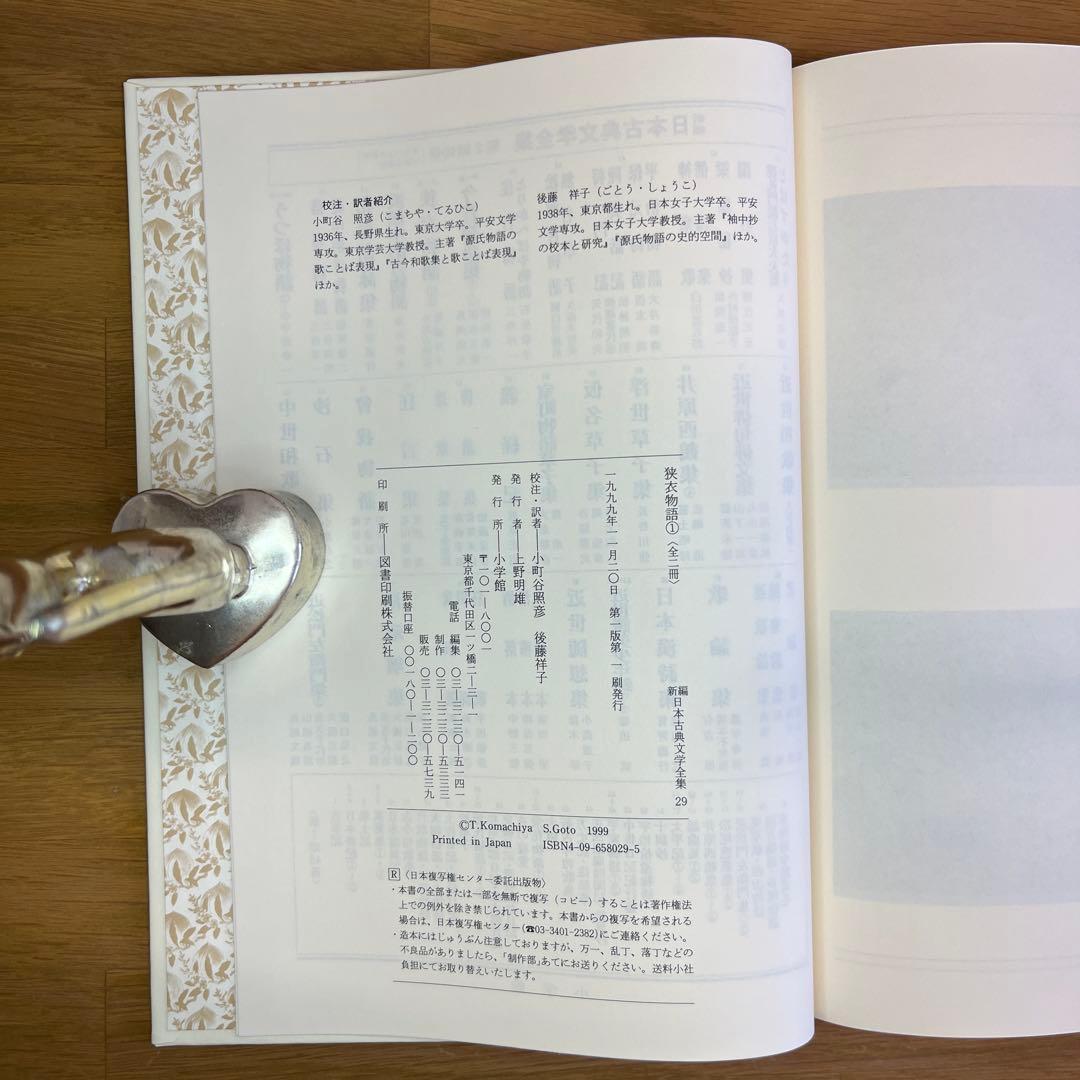 校注・訳者紹介
小町谷　照彦（こまちや・てるひこ）
1936年、長野県生れ。東京大学卒。平安文学
専攻。東京学芸大学教授。主著『源氏物語の
歌ことば表現』『古今和歌集と歌ことば表現』
ほか。
後藤　祥子（ごとう・しょうこ）
1938年、東京都生れ。日本女子大学卒。平安
文学専攻。日本女子大学教授。主著『袖中抄
の校本と研究』『源氏物語の史的空間』ほか。
新編日本古典文学全集 29
狭衣物語①〈全二冊〉
一九九九年一一月二〇日　第一版第一刷発行
校注・訳者――小町谷照彦　後藤祥子
発行者――上野明雄
発行所――小学館
〒一〇一-八〇〇一
東京都千代田区一ツ橋二-三-一
電話　編集　〇三-三二三〇-五一四一
制作　〇三-三二三〇-五三三三
販売　〇三-三二三〇-五七三九
振替口座　〇〇一八〇-一-二〇〇
印刷所――図書印刷株式会社
©T.Komachiya　S.Goto　1999
Printed in Japan　ISBN4-09-658029-5
R〈日本複写権センター委託出版物〉
・本書の全部または一部を無断で複写（コピー）することは著作権法
上での例外を除き禁じられています。本書からの複写を希望される
場合は、日本複写権センター(☎03-3401-2382)にご連絡ください。
・造本にはじゅうぶん注意しておりますが、万一、乱丁、落丁などの
不良品がありましたら、「制作部」あてにお送りください。送料小社
負担にてお取り替えいたします。